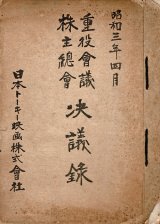 昭和三年四月
重役會議
株主總會
决議録
日本トーキー映画株式會社